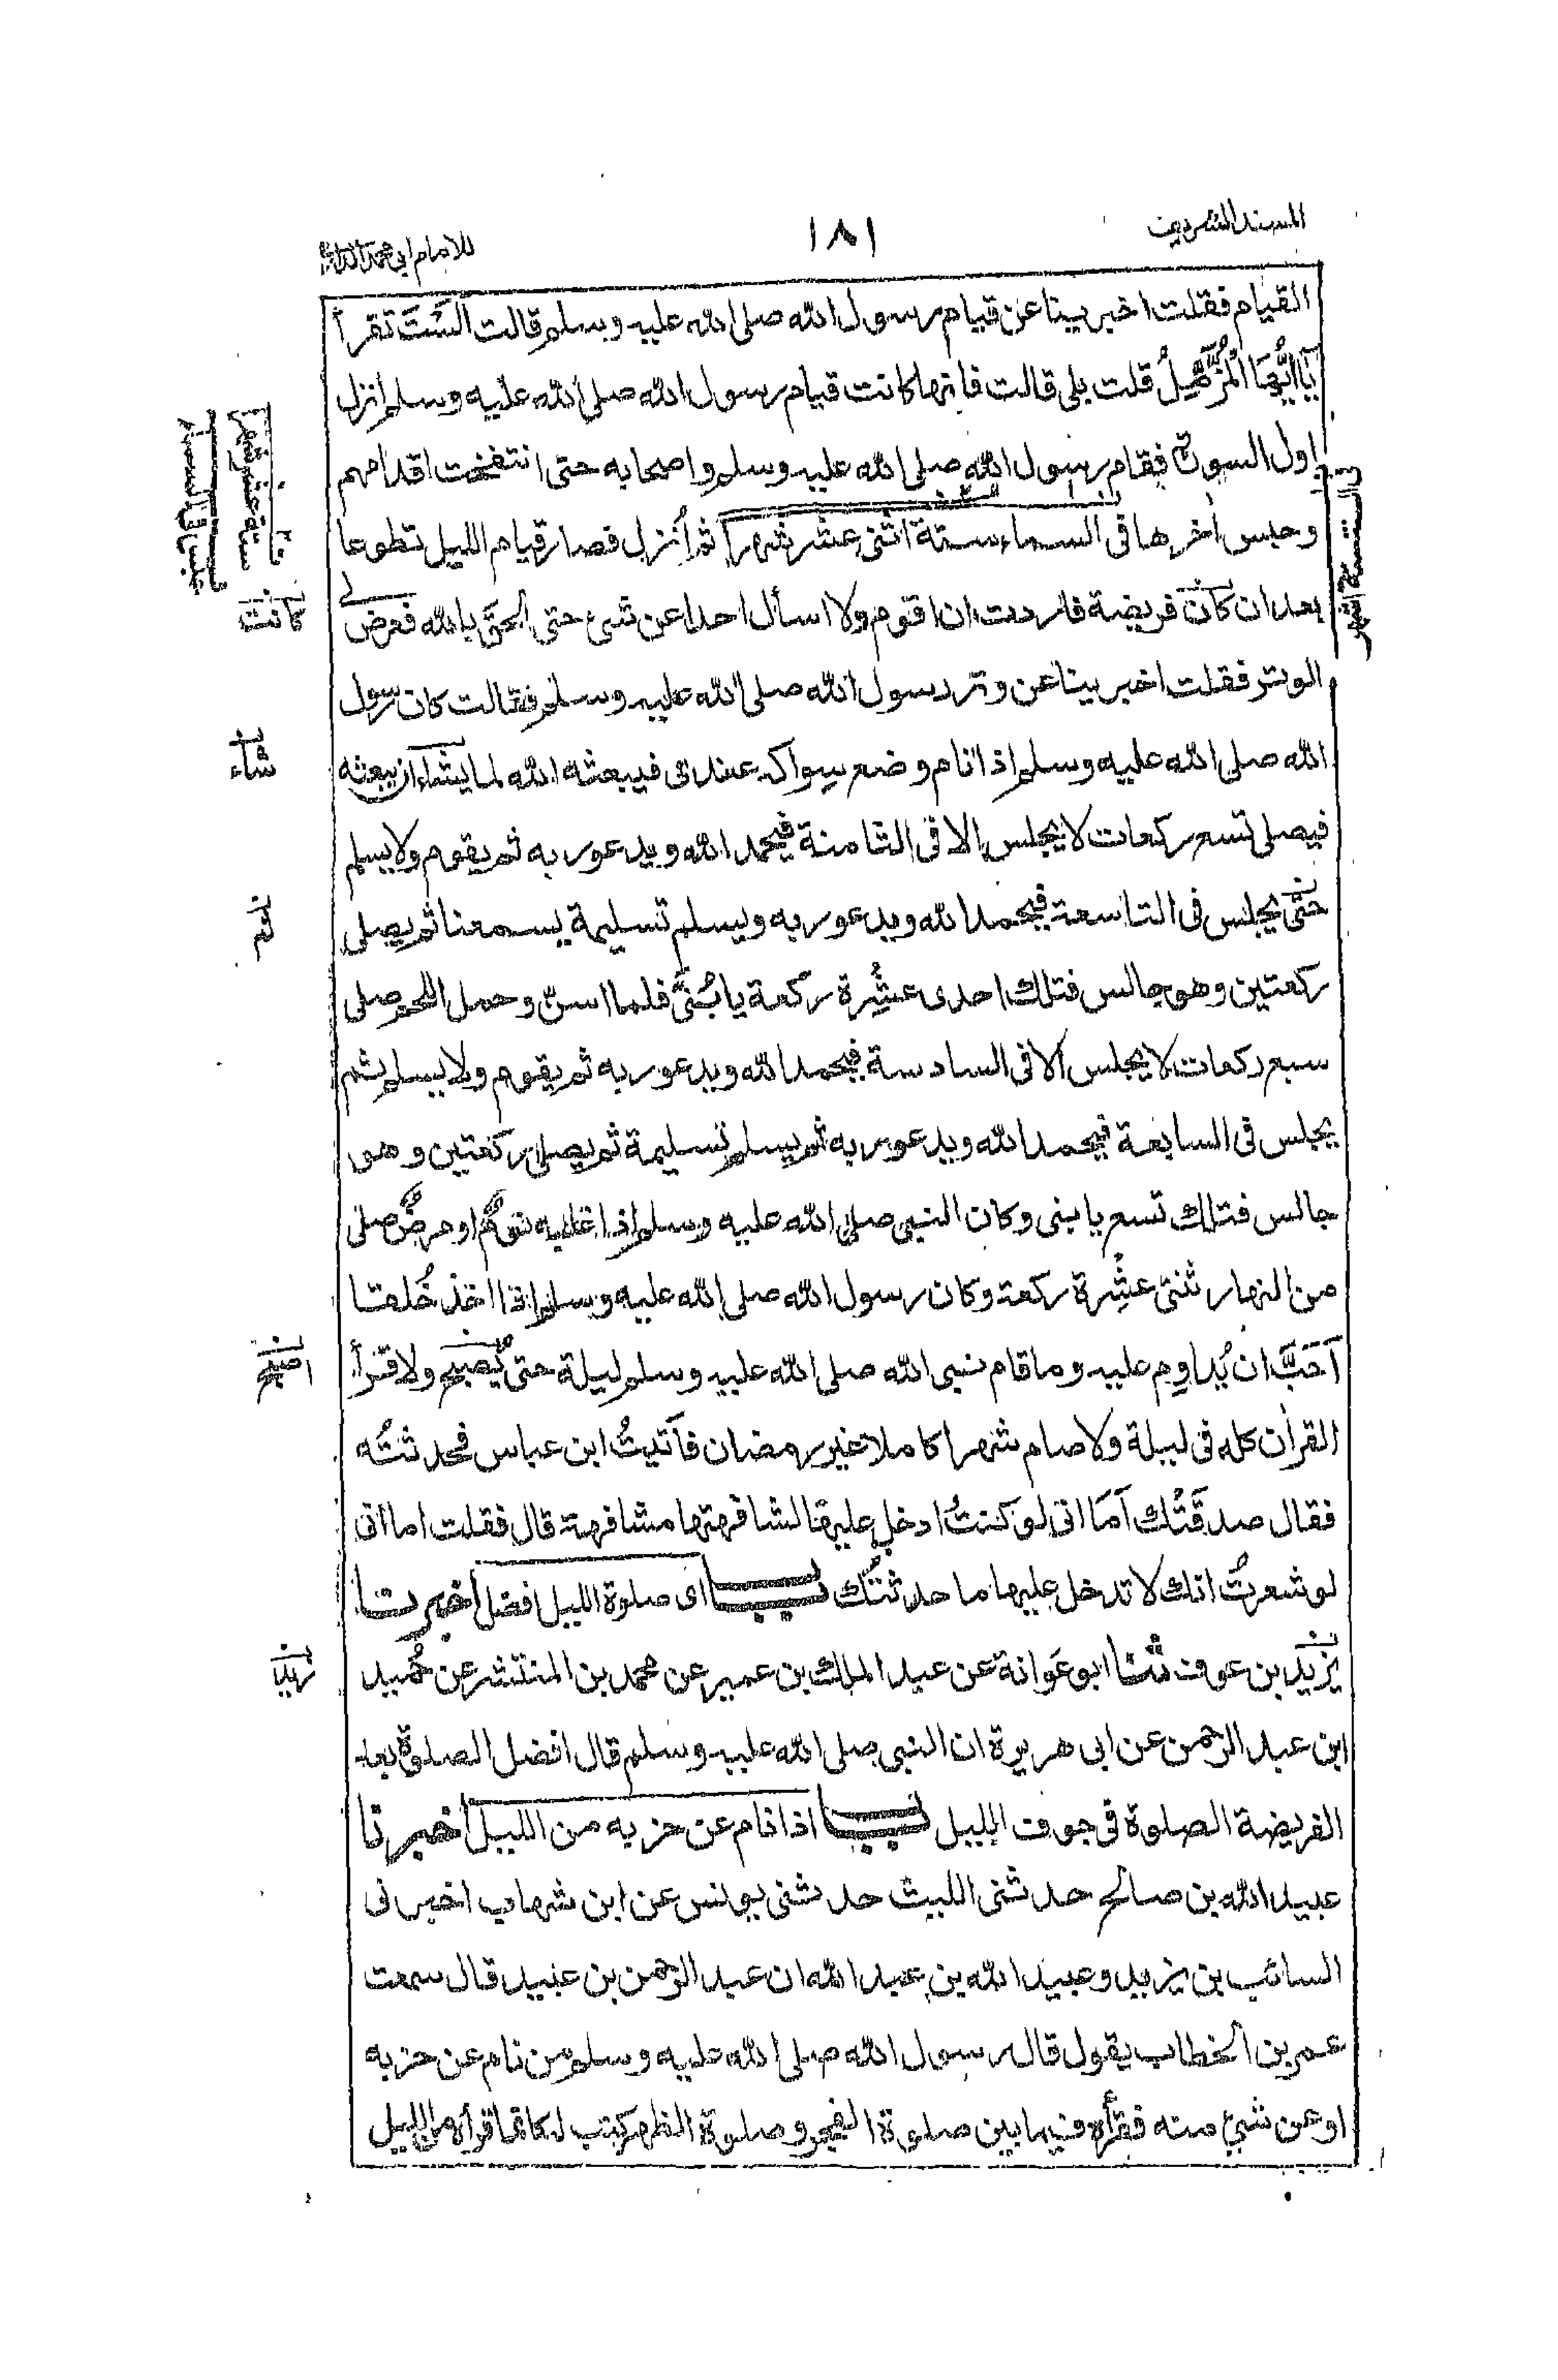 المسند الشريف
١٨١
للامام ابى محمد الدارمى
القيام فقلت اخبرينا عن قيام رسول الله صلى الله عليه وسلم قالت الَسْتَ تقرأ
يٰاَيُّهَا الْمُزَّمِّلُ قلت بلى قالت فانها كانت قيام رسول الله صلى الله عليه وسلم انزل
اول السورة فقام رسول الله صلى الله عليه وسلم واصحابه حتى انتفخت اقدامهم
وحبس اخرها فى السماء ستة اثنى عشر شهرا ثم اُنزل فصار قيام الليل تطوعا
بعد ان كان فريضة فاردت ان اقوم ولا اسأل احدا عن شئ حتى الحق بالله فعرض لى
كانت
الوتر فقلت اخبرينا عن وتر رسول الله صلى الله عليه وسلم فقالت كان رسول
الله صلى الله عليه وسلم اذا نام وضع سواكه عندى فيبعثه الله لما يشاء ان يبعثه
شاء
فيصلى تسع ركعات لا يجلس الا فى الثامنة فيحمد الله ويدعو ربه ثم يقوم ولا يسلم
حتى يجلس فى التاسعة فيحمد الله ويدعو ربه ويسلم تسليمة يسمعنا ثم يصلى
ثم
ركعتين وهو جالس فتلك احدى عشْرة ركعة يا بُنَىَّ فلما اسنّ وحمل اللحم صلى
سبع ركعات لا يجلس الا فى السادسة فيحمد الله ويدعو ربه ثم يقوم ولا يسلم ثم
يجلس فى السابعة فيحمد الله ويدعو ربه ثم يسلم تسليمة ثم يصلى ركعتين وهو
جالس فتلك تسع يا بنى وكان النبى صلى الله عليه وسلم اذا غلبه نومٌ او مرضٌ صلى
من النهار ثنتى عشْرة ركعة وكان رسول الله صلى الله عليه وسلم اذا اخذ خُلقا
اَحَبَّ ان يُداوِم عليه وما قام نبى الله صلى الله عليه وسلم ليلة حتى يُصبح ولا قرأ
اصبح
القران كله فى ليلة ولا صام شهرا كاملا غير رمضان فاَتيتُ ابن عباس فحدثتُه
فقال صدقَتْك اَمَا انى لو كنتُ ادخل عليها لشافهتها مشافهة قال فقلت اما انى
لو شعرتُ انك لا تدخل عليها ما حدثتُك باب اى صلوة الليل افضل اخبرنا
يزيد بن عوف ثنا ابو عَوانة عن عبد الملك بن عمير عن محمد بن المنتشر عن حُميد
زيد
ابن عبد الرحمن عن ابى هريرة ان النبى صلى الله عليه وسلم قال افضل الصلوة بعد
الفريضة الصلوة فى جوف الليل باب اذا نام عن حزبه من الليل اخبرنا
عبيد الله بن صالح حدثنى الليث حدثنى يونس عن ابن شهاب اخبرنى
السائب بن يزيد وعبيد الله بن عبد الله ان عبد الرحمن بن عبيد قال سمعت
عمر بن الخطاب يقول قال رسول الله صلى الله عليه وسلم من نام عن حزبه
او عن شئ منه فقرأه فيما بين صلوة الفجر وصلوة الظهر كتب له كانما قرأه من الليل